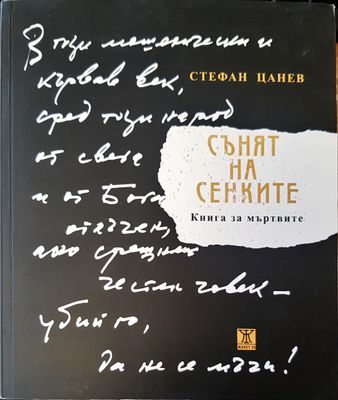 В този мошенически и
кървав век,
сред този народ
от света
и от Бога
отлъчен,
ако срещнеш
честен човек –
убий го,
да не се мъчи!
СТЕФАН ЦАНЕВ
СЪНЯТ
НА
СЕНКИТЕ
Книга за мъртвите
ЖАНЕТ 45